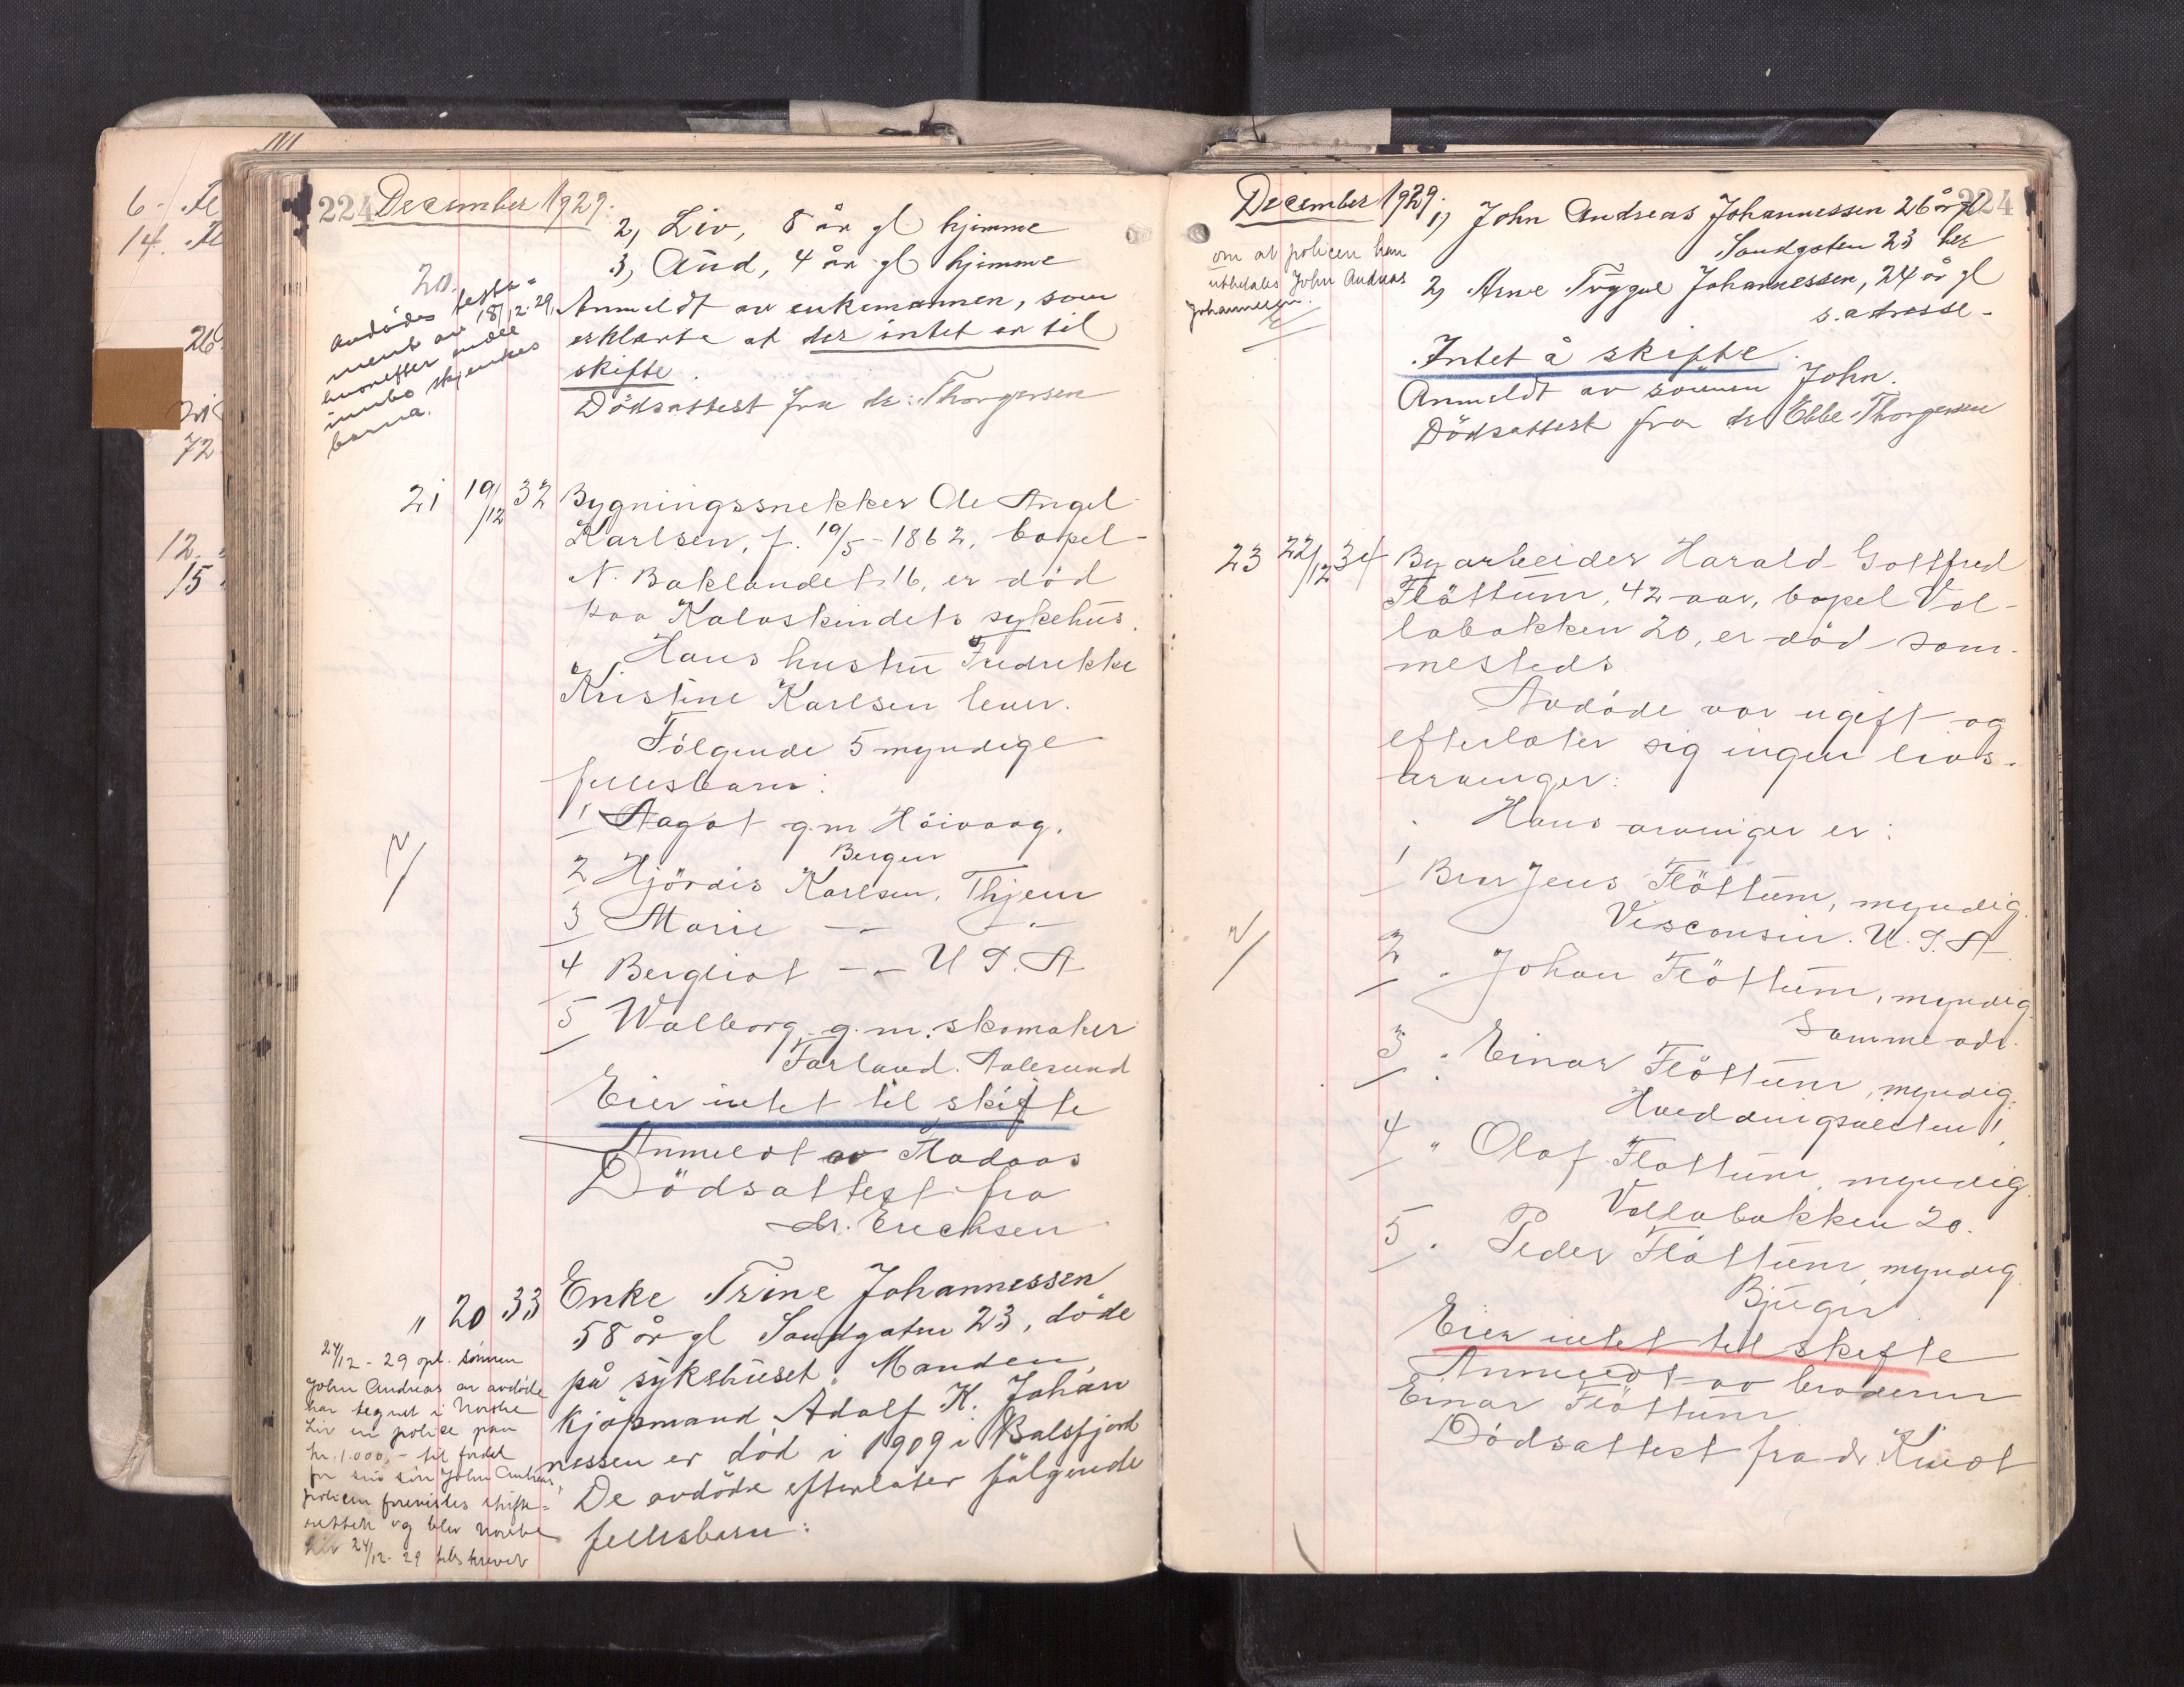 6 -
14.
26
72
12
15
224 December 1929.
2, Liv, 8 år gl hjemme
3, Aud, 4 år gl hjemme
20.
Avdødes testa-
ment av 18/12-29,
hvorefter
innbo skjenkes
barna.
Anmeldt av enkemannen, som
erklærte at der intet er til
skifte.
Dödsattest fra dr. Thorgersen
21 19/12 32 Bygningssnekker Ole Angel
Karlsen, f. 19/5-1862, bopel
N. Baklandet 16, er död
paa Kalvskindets sykehus.
Hans hustru Fredrikke
Kristine Karlsen lever.
Fölgende 5 myndige
fellesbarn:
1 Aagot g.m Höivaag.
Bergen
2 Hjördis Karlsen, Thjem
3 Marie -"- -"-
4 Bergliot -"- U S. A
5 Walborg g.m. skomaker
Farland. Aalesund
Eier intet til skifte
Anmeldt av Fladaas
Dödsattest fra
dr. Erichsen
" 20 33 Enke Trine Johannessen
58 år gl Sandgaten 23, döde
på sykehuset. Manden,
kjöpmand Adolf K. Johan
nessen er död i 1909 i Balsfjord
De avdöde efterlater fölgende
fellesbarn:
24/12-29 opl. sönnen
John Andreas at avdöde
har tegnet i Norske
Liv en police paa
kr. 1.000,- til fordel
for sin sön John Andreas,
policen forevistes skifte-
retten og blev Norske
Liv 24/12-29 tilskrevet
December 1929. 224
om at policen kan
utbetales John Andreas
Johannessen.
1) John Andreas Johannessen 26 år gl
Sandgaten 23 her
2) Arne Trygve Johannessen, 24 år gl
s. adresse -
Intet å skifte.
Anmeldt av sönnen John.
Dödsattest fra dr Ebbe Thorgersen
23 22/12 34 Byarbeider Harald Gottfred
Flöttum, 42 aar, bopel Vol-
labakken 20, er död sam-
mesteds
Avdöde var ugift og
efterlater sig ingen livs-
arvinger:
Hans arvinger er:
1 Bror Jens Flöttum, myndig.
Visconsin. U. S. A
2 " Johan Flöttum, myndig.
Samme adr.
3 " Einar Flöttum, myndig.
4 " Olaf Flottum, myndig.
Vollabakken 20.
5 " Peder Flöttum, myndig
Bjugn
Eier intet til skifte
Anmeldt av broderen
Einar Flöttum
Dödsattest fra dr. Knot